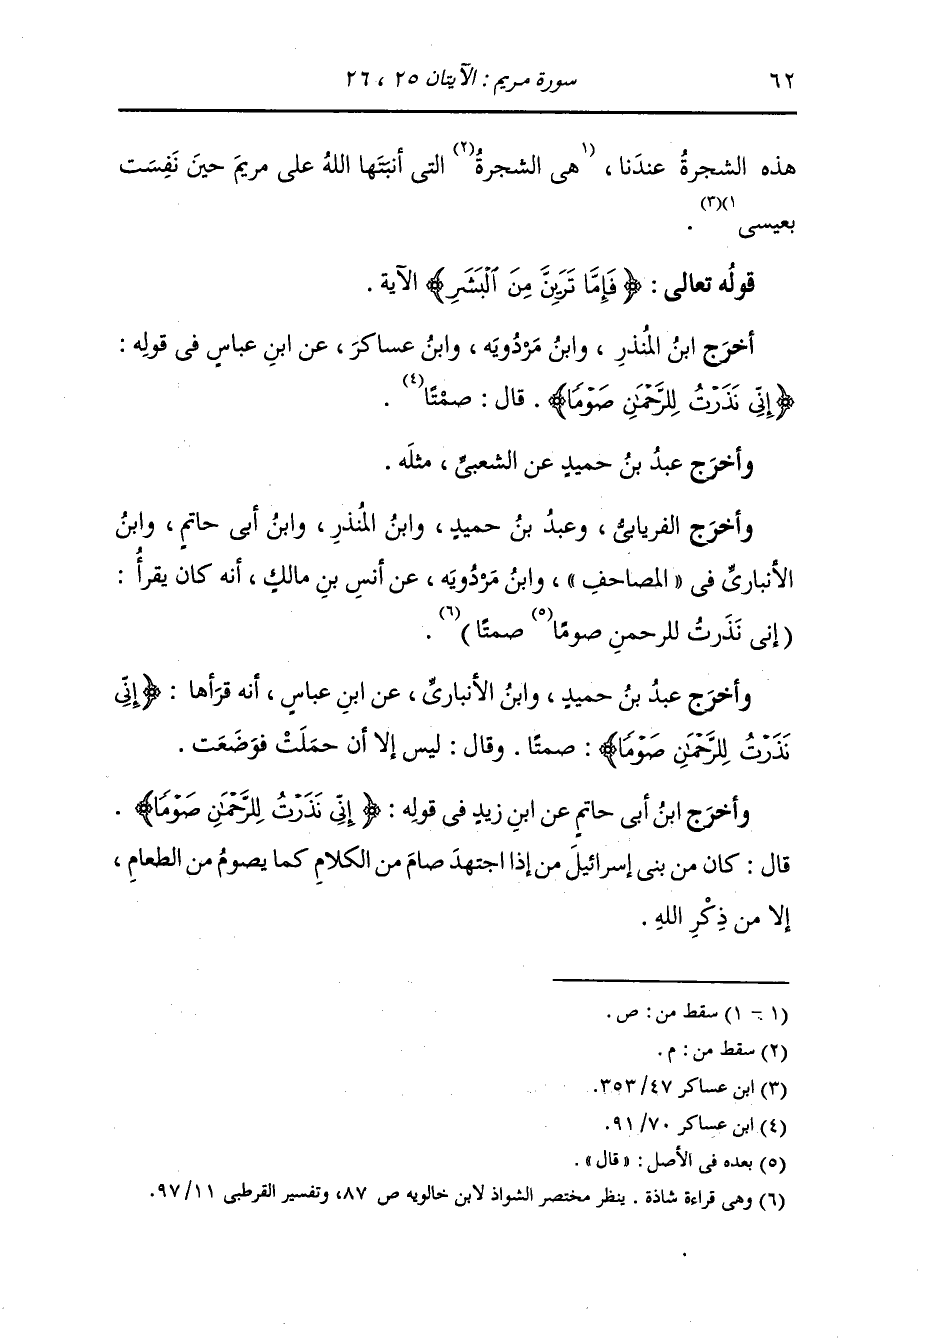 ٦٢ سورة مريم : الآيتان ٢٥ ، ٢٦
هذه الشجرةُ عندَنا ، (١هى الشجرةُ(٢) التى أنبَتَها اللهُ على مريمَ حينَ نَفِسَت
بعيسى ١)(٣) .
قولُه تعالى : ﴿ فَإِمَّا تَرَيِنَّ مِنَ ٱلْبَشَرِ﴾ الآية .
أخرَج ابنُ المُنذرِ ، وابنُ مَرْدُويَه ، وابنُ عساكرَ ، عن ابنِ عباسٍ فى قولِه :
﴿إِنِّي نَذَرْتُ لِلرَّحْمَٰنِ صَوْمًا﴾ . قال : صمْتًا(٤) .
وأخرَج عبدُ بنُ حميدٍ عن الشعبىِّ ، مثلَه .
وأخرَج الفريابىُّ ، وعبدُ بنُ حميدٍ ، وابنُ المُنذرِ ، وابنُ أبى حاتمٍ ، وابنُ
الأنبارىِّ فى « المصاحفِ » ، وابنُ مَرْدُويَه ، عن أنسِ بنِ مالكٍ ، أنه كان يقرأُ :
( إنى نَذَرتُ للرحمنِ صومًا(٥) صمتًا )(٦) .
وأخرَج عبدُ بنُ حميدٍ ، وابنُ الأنبارىِّ ، عن ابنِ عباسٍ ، أنه قرَأها : ﴿إِنِّي
نَذَرْتُ لِلرَّحْمَٰنِ صَوْمًا﴾ : صمتًا . وقال : ليس إلا أن حمَلَتْ فوَضَعَت .
وأخرَج ابنُ أبى حاتمٍ عن ابنِ زيدٍ فى قولِه : ﴿ إِنِّي نَذَرْتُ لِلرَّحْمَٰنِ صَوْمًا﴾ .
قال : كان من بنى إسرائيلَ من إذا اجتهدَ صامَ من الكلامِ كما يصومُ من الطعامِ ،
إلا من ذِكْرِ اللهِ .
(١ - ١) سقط من : ص .
(٢) سقط من : م .
(٣) ابن عساكر ٤٧/ ٣٥٣.
(٤) ابن عساكر ٧٠/ ٩١.
(٥) بعده فى الأصل : « قال » .
(٦) وهى قراءة شاذة . ينظر مختصر الشواذ لابن خالويه ص ٨٧، وتفسير القرطبى ١١/ ٩٧.